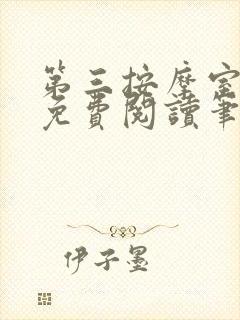 第三按摩室
免費閱讀筆
伊子墨